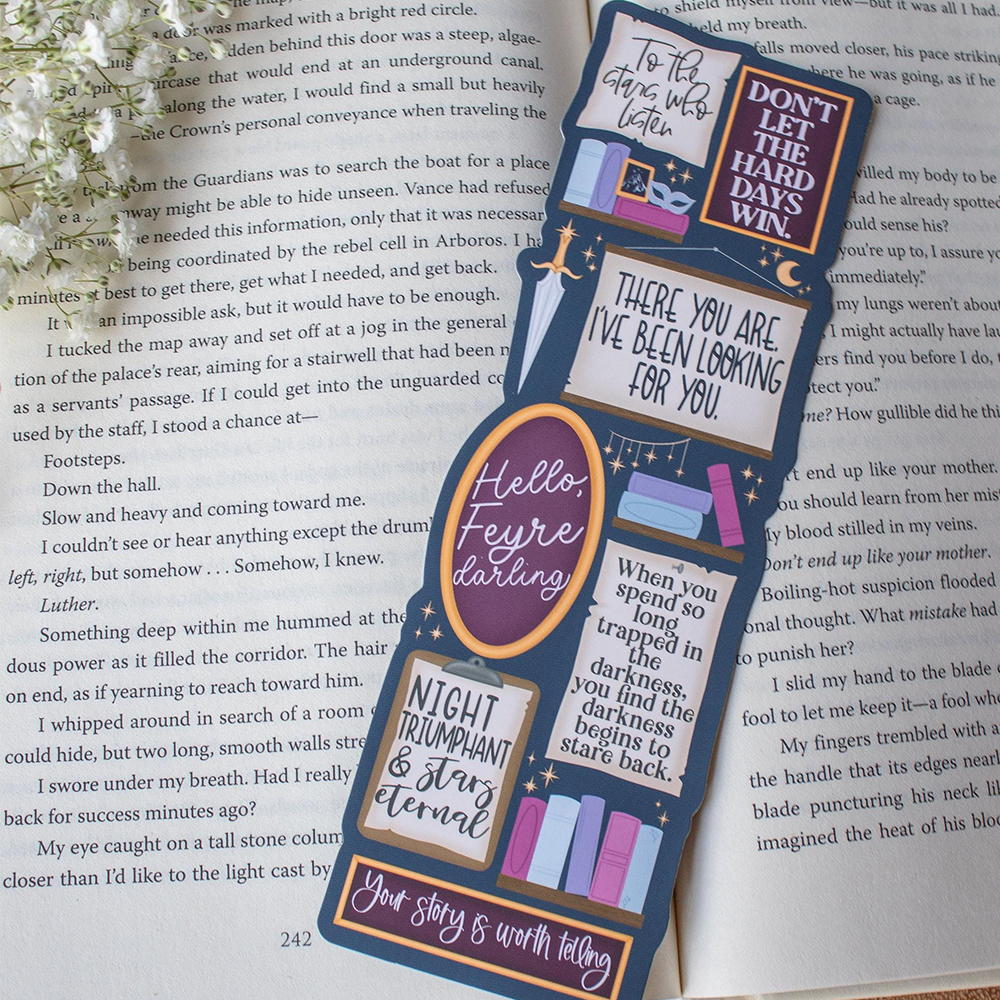 door was marked with a bright red circle.
hidden behind this door was a steep, algae-
that would end at an underground canal.
along the water, I would find a small but heavily
the Crown's personal conveyance when traveling the
from the Guardians was to search the boat for a place
might be able to hide unseen. Vance had refused
needed this information, only that it was necessary
being coordinated by the rebel cell in Arboros. I
minutes at best to get there, get what I needed, and get back.
It an impossible ask, but it would have to be enough.
I tucked the map away and set off at a jog in the general
tion of the palace's rear, aiming for a stairwell that had been
as a servants' passage. If I could get into the unguarded
used by the staff, I stood a chance at—
Footsteps.
Down the hall.
Slow and heavy and coming toward me.
I couldn't see or hear anything except the
left, right, but somehow . . . Somehow, I knew.
Luther.
Something deep within me hummed at the
dous power as it filled the corridor. The hair
on end, as if yearning to reach toward him.
I whipped around in search of a room
could hide, but two long, smooth walls
I swore under my breath. Had I really
back for success minutes ago?
My eye caught on a tall stone
closer than I'd like to the light cast by
242
To the
stars who
listen
DON'T
LET
THE
HARD
DAYS
WIN.
THERE YOU ARE.
I'VE BEEN LOOKING
FOR YOU.
Hello,
Feyre
darling
When you
spend so
long
trapped in
the
darkness,
you find the
darkness
begins to
stare back.
NIGHT
TRIUMPHANT
& stars
eternal
Your story is worth telling
to shield myself from view—but it was all I had.
held my breath.
falls moved closer, his pace striking
where he was going, as if he
a cage.
willed my body to be
Had he already spotted
could sense his?
you're up to, I assure
immediately."
my lungs weren't about
I might actually have
find you before I do,
protect you."
me? How gullible did he
end up like your mother.
you should learn from her
My blood stilled in my veins.
Don't end up like your mother.
Boiling-hot suspicion flooded
onal thought. What mistake had
to punish her?
I slid my hand to the blade
fool to let me keep it—a fool who
My fingers trembled with a
the handle that its edges
blade puncturing his neck
imagined the heat of his